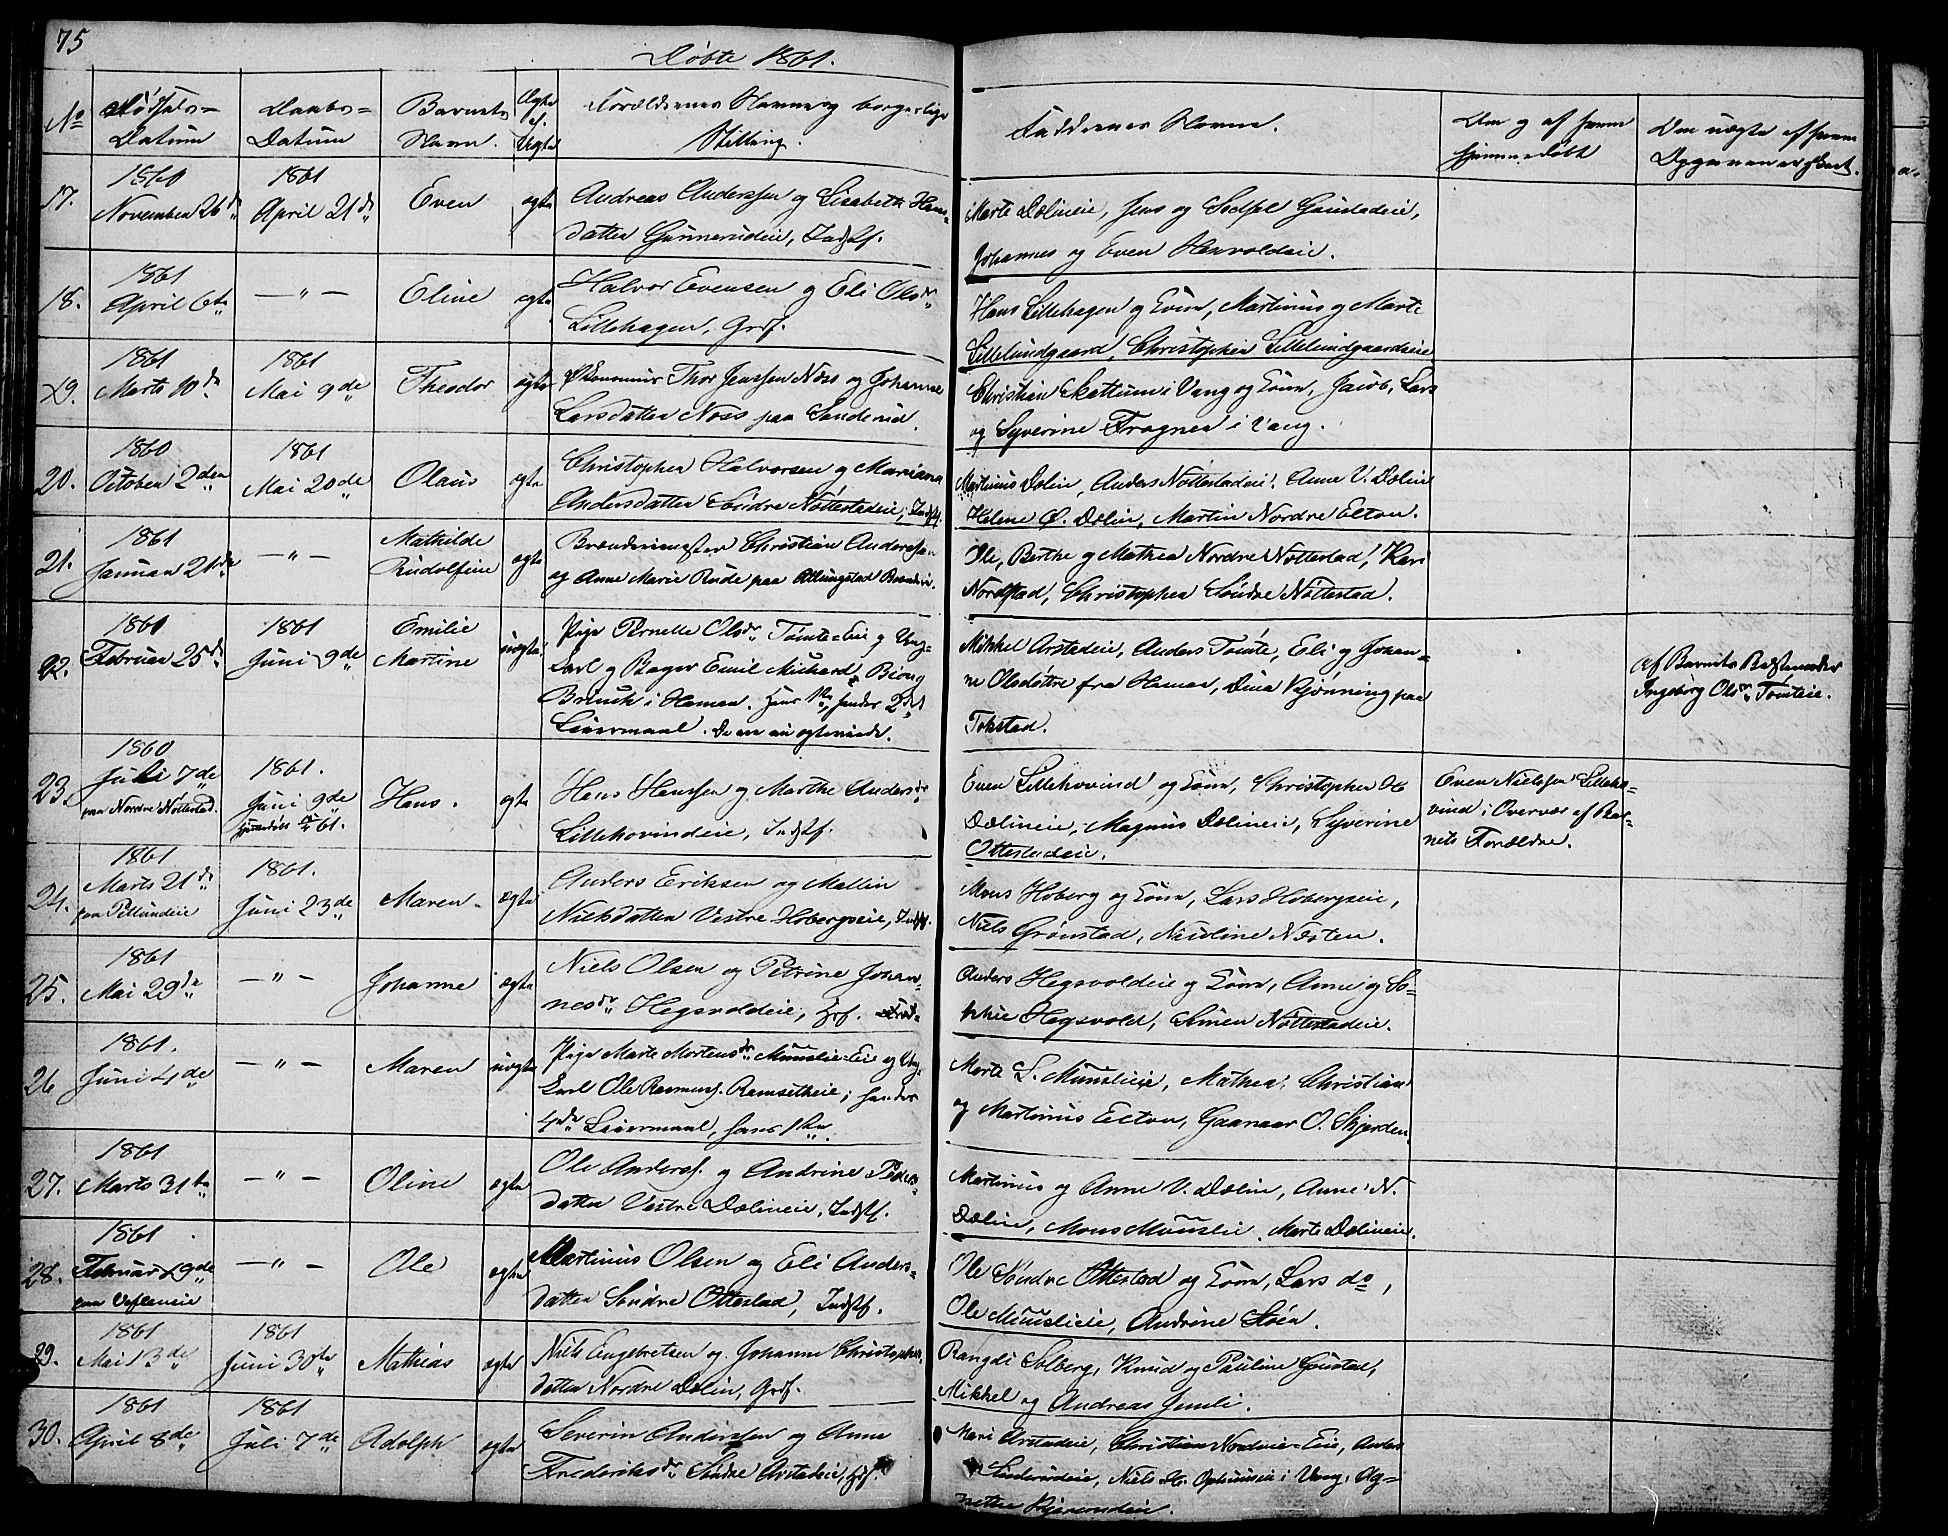 75
Døbte 1861.
No
Fødsels=
Datum
Daabs=
Datum
Barnets
Navn.
Ægte
el.
Uægte
Forældrenes Navne og borgerlige
Stilling.
Faddernes Navne.
Om og af hvem
hjemmedøbt
Om uægte af hvem
17.
1860
November 26d
1861
April 21d
Even
ægte
Andreas Anderssen og Lisabeth Hans-
datter Gunnerudeie, Indst.
Marte Dælineie, Jens og Sidsel
Johannes og Even
18.
1861
April 6te
— " —
Eline
ægte
Halvor Evensen og Eli Olsdr
Lillehagen, Grdf.
Hans Lillehagen og Kone, Martinus og Marte
Lillelundgaard, Christopher Lillelundgaardseie
19.
1861
Marts 10de
1861
Mai 9de
Theodor
ægte
Thor Jenssen Næss og Johanne
Larsdatter Næss paa Sanderud.
Christian Skattum i Vang og Kone, Jacob, Lars
og Syverine Frogner i Vang.
20.
1860
October 2den
1861
Mai 20de
Olaus
ægte
Christopher Halvorsen og Mariane
Andersdatter Søndre Nøttestadeie, Indst.
Martinus Dælin, Anders Nøttestadeie, Anne V. Dælin
Helene Ø. Dælin, Martin Nordre Elton.
21.
1861
Januar 21de
— " —
Mathilde
Rudolfine
ægte
Brænderimester Christian Anderssen
og Anne Marie Rude paa Brænderi.
Ole, Berthe og Mathea Nordre Nøttestad, Kari
Nordstad, Christopher Søndre Nøttestad.
22.
1861
Februar 25de
1861
Juni 9de
Emilie
Martine
uægte
Pige Pernelle Olsdr Tomte=Eie og Ung-
karl og Bager Emil
i Hamar. Hans 1ste, hendes 2det
Leiermaal. De ere nu ægteviede.
Mikkel Arstadeie, Anders Tomte, Eli og Johan-
ne Olsdøttre fra Hamar, Dina Kjønning paa
Tokstad.
Af Barnets Bedstemoder
Ingeborg Olsdr Tomteie.
23.
1860
Juli 7de
paa Nordre Nøttestad.
1861.
Juni 9de
61.
Hans.
ægte
Hans Hanssen og Marthe Andersdr
Lillehovindeie, Indst.
Even Lillehovind og Kone, Christopher H
Dælineie, Magnus Dælineie, Syverine
Ottestadeie.
Even Nielssen Lilleho-
vind i Overvær af Bar-
nets Forældre.
24.
1861
Marts 21de
1861.
Juni 23de
Maren
ægte
Anders Eriksen og Mallin
Vestre Hobergseie, Indst.
Mons Hoberg og Kone, Lars Hobergseie,
Niels Grønstad, Nicoline Næsten.
25.
1861
Mai 29de
— " —
Johanne
ægte
Niels Olsen og Petrine Johan-
nesdr Hegsvoldeie,
Anders Hegsvoldeie og Kone, Anne og So-
phie Hegsvold, Simen Nøttestadeie.
26
1861.
Juni 4de
— " —
Maren
uægte
Pige Marte Mortensdr Munslie=Eie og Ung-
karl Ole Rasmuss. Ramsetheie; hendes
4de Leiermaal, hans 1ste.
Marte L. Munslieie, Mathea, Christian
og Martinus Elton, Gunnar O. Skjerden.
27.
1861
Marts 31te
— " —
Oline
ægte
Ole Anderss. og Andrine Peders-
datter Vestre Dælineie, Indst.
Martinus og Anne V. Dælin, Anne N.
Dælin, Mons Munslie, Marte Dælineie.
28.
1861
Februar 19de
— " —
Ole
ægte
Martinus Olsen og Eli Anders-
datter Søndre Ottestad, Indst.
Ole Søndre Ottestad og Kone, Lars do,
Ole Munslieie, Andrine Støen.
29.
1861
Mai 13de
1861
Juni 30te
Mathias
ægte
Niels Engebretsen og Johanne Christopher-
datter Nordre Dælin, Grdf.
Rangdi Solberg, Knud og Pauline Goustad,
Mikkel og Andreas Jemli.
30.
1861
April 8de
1861
Juli 7de
Adolph
ægte
Severin Anderssen og Anne
Frederiksdr Søndre Arstadeie,
Mari Arstadeie, Christian
Sanderudeie, Niels i Vang, Ag-
nethe